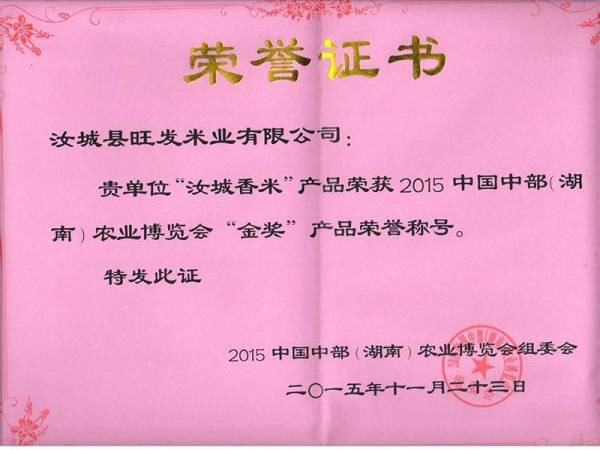 荣誉证书
汝城县旺发米业有限公司：
贵单位“汝城香米”产品荣获 2015 中国中部（湖
南）农业博览会“金奖”产品荣誉称号。
特发此证
2015 中国中部（湖南）农业博览会组委会
二〇一五年十一月二十三日